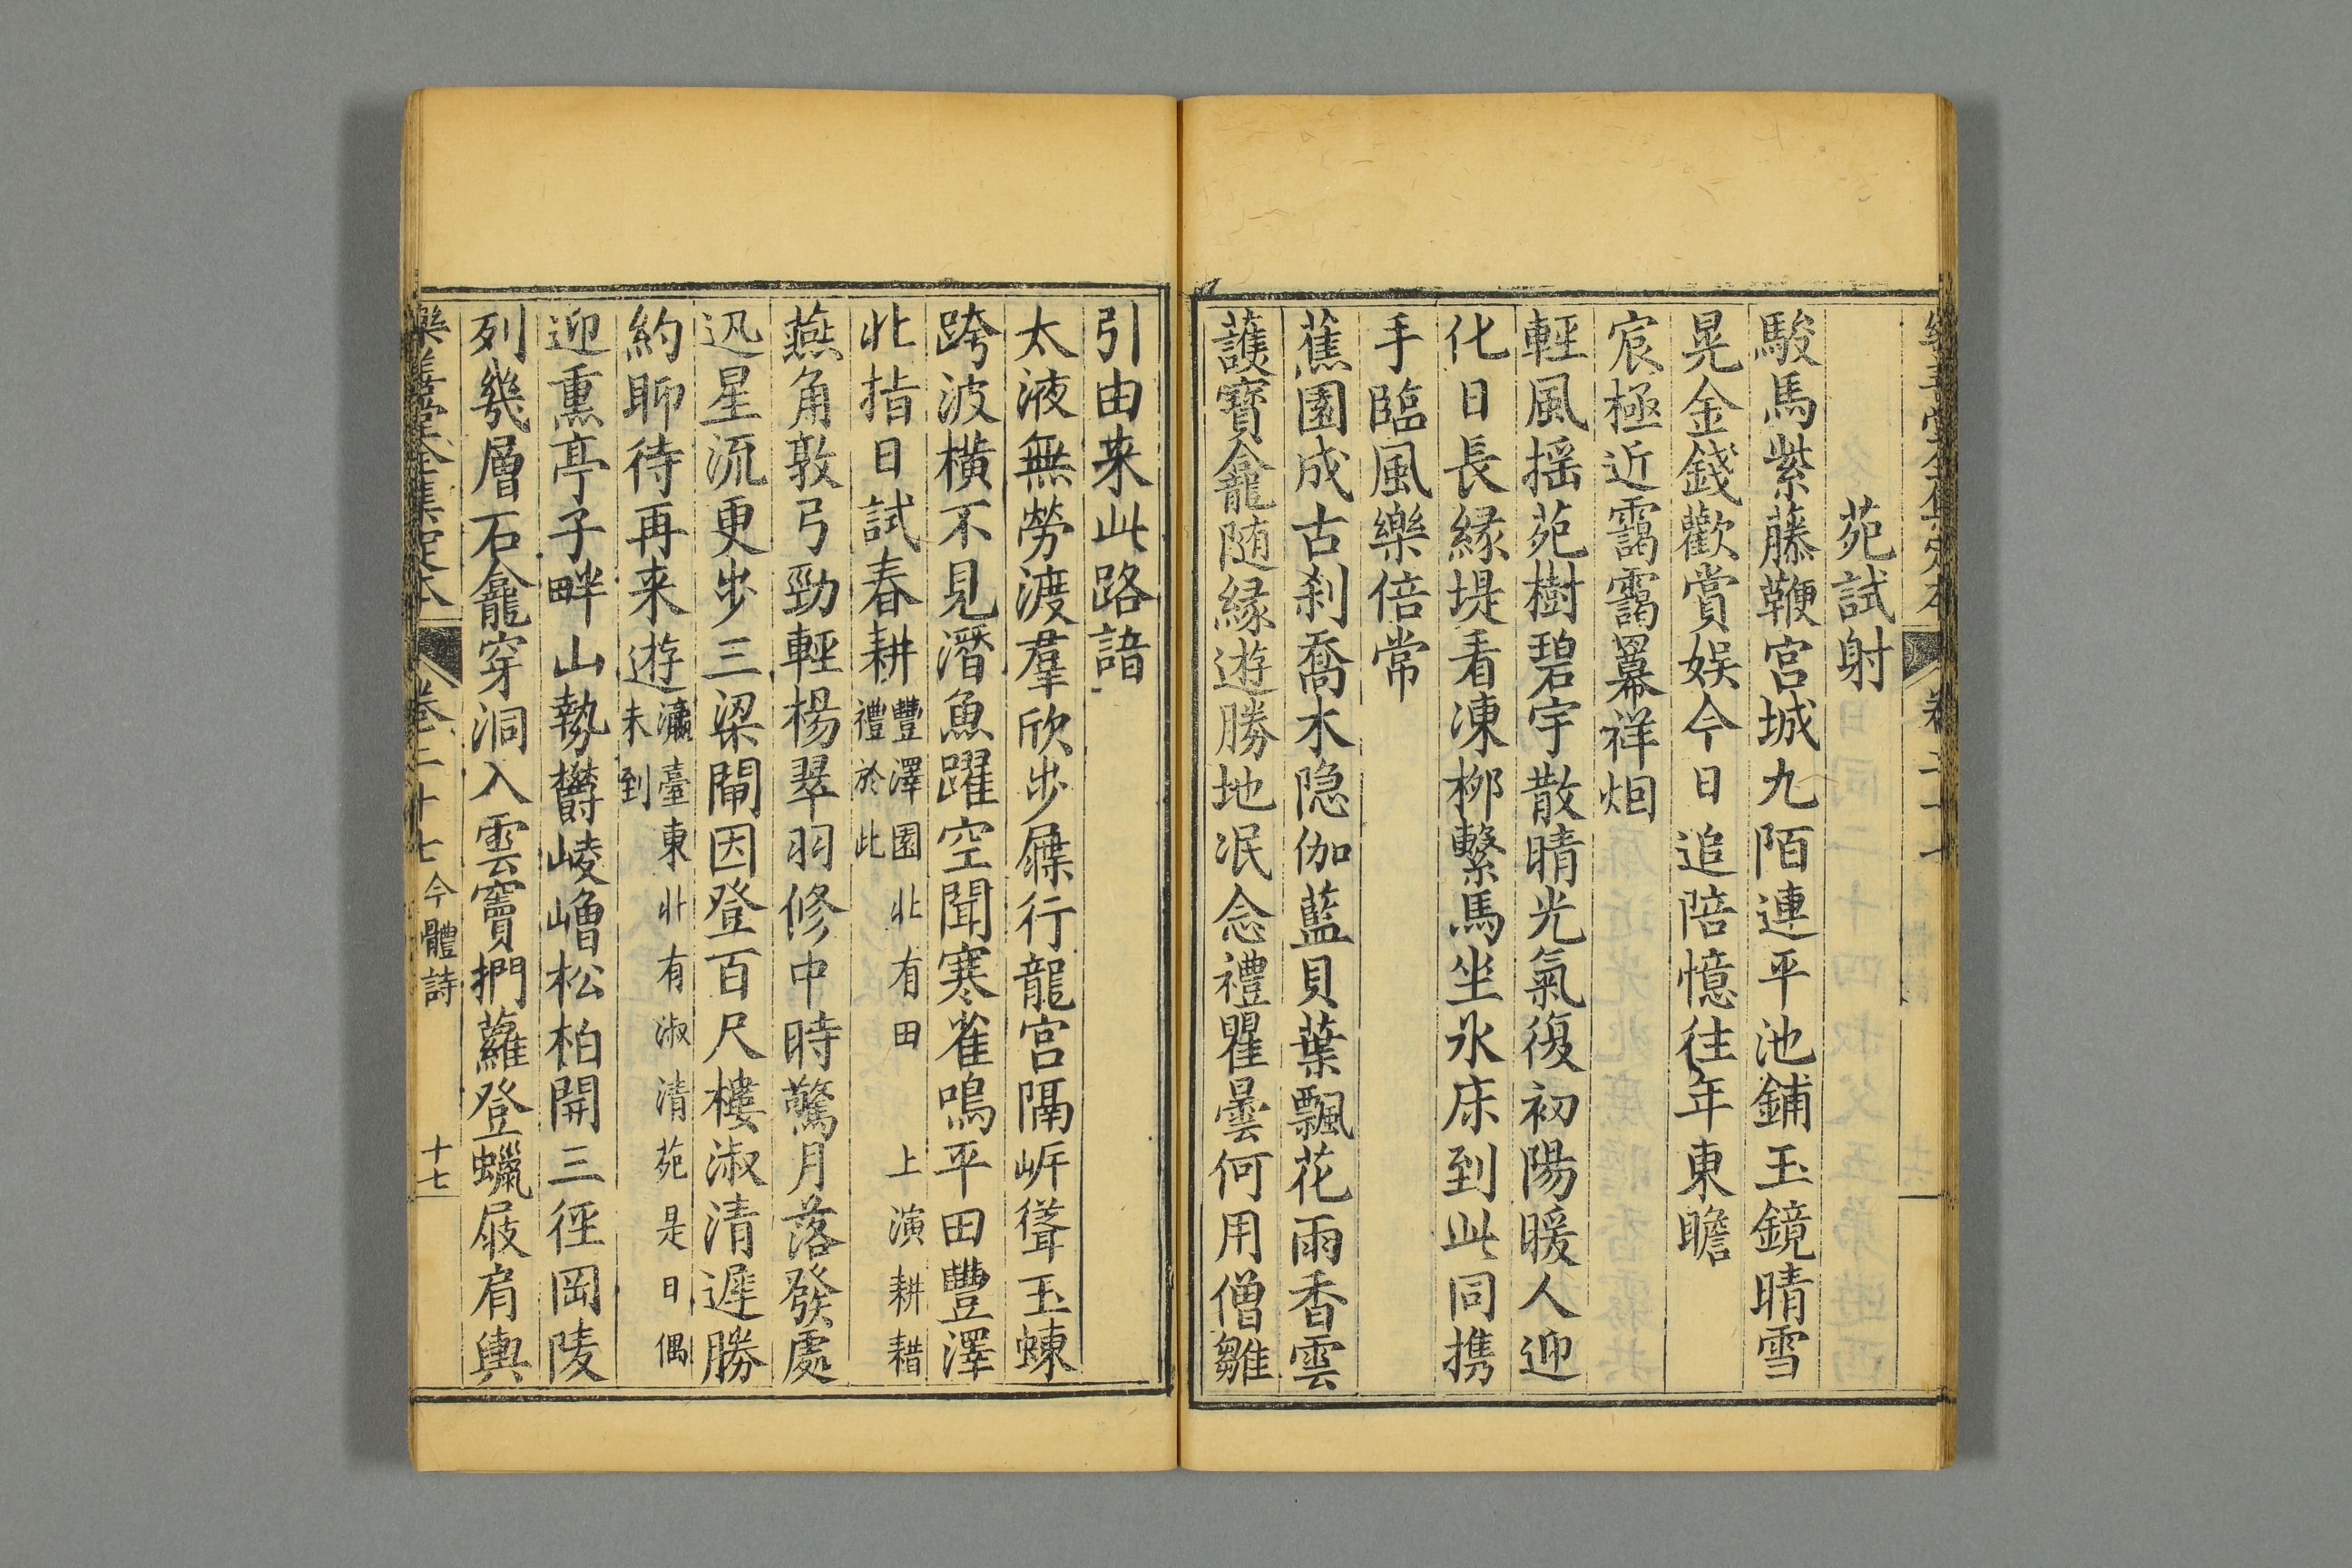 苑試射
駿馬紫藤鞭宫城九陌連平池鋪玉鏡晴雪
晃金錢歡賞娱今日追陪憶往年東瞻
宸極近靄靄羃祥烟
輕風揺苑樹碧宇散晴光氣復初陽暖人迎
化日長緣堤看凍栁繫馬坐氷床到此同携
手臨風樂倍常
蕉園成古刹喬木隐伽藍貝葉飄花雨香雲
護寶龕随緣遊勝地泯念禮瞿曇何用僧雛
引由来此路諳
太液無勞渡羣欣步屧行龍宫隔岓聳玉蝀
跨波橫不見潛魚躍空聞寒雀鳴平田豐澤
北指日試春耕豐澤園北有田 上演耕耤
禮於此
燕角敦弓勁輕楊翠羽修中時驚月落發處
迅星流更步三梁閘因登百尺樓淑清遲勝
約聊待再来遊瀛臺東北有淑清苑是日偶
未到
迎熏亭子畔山勢欝崚嶒松柏開三徑岡陵
列幾層石龕穿洞入雲竇捫蘿登蠟屐肩輿
樂善堂全集定本 卷二十七 今體詩 十七